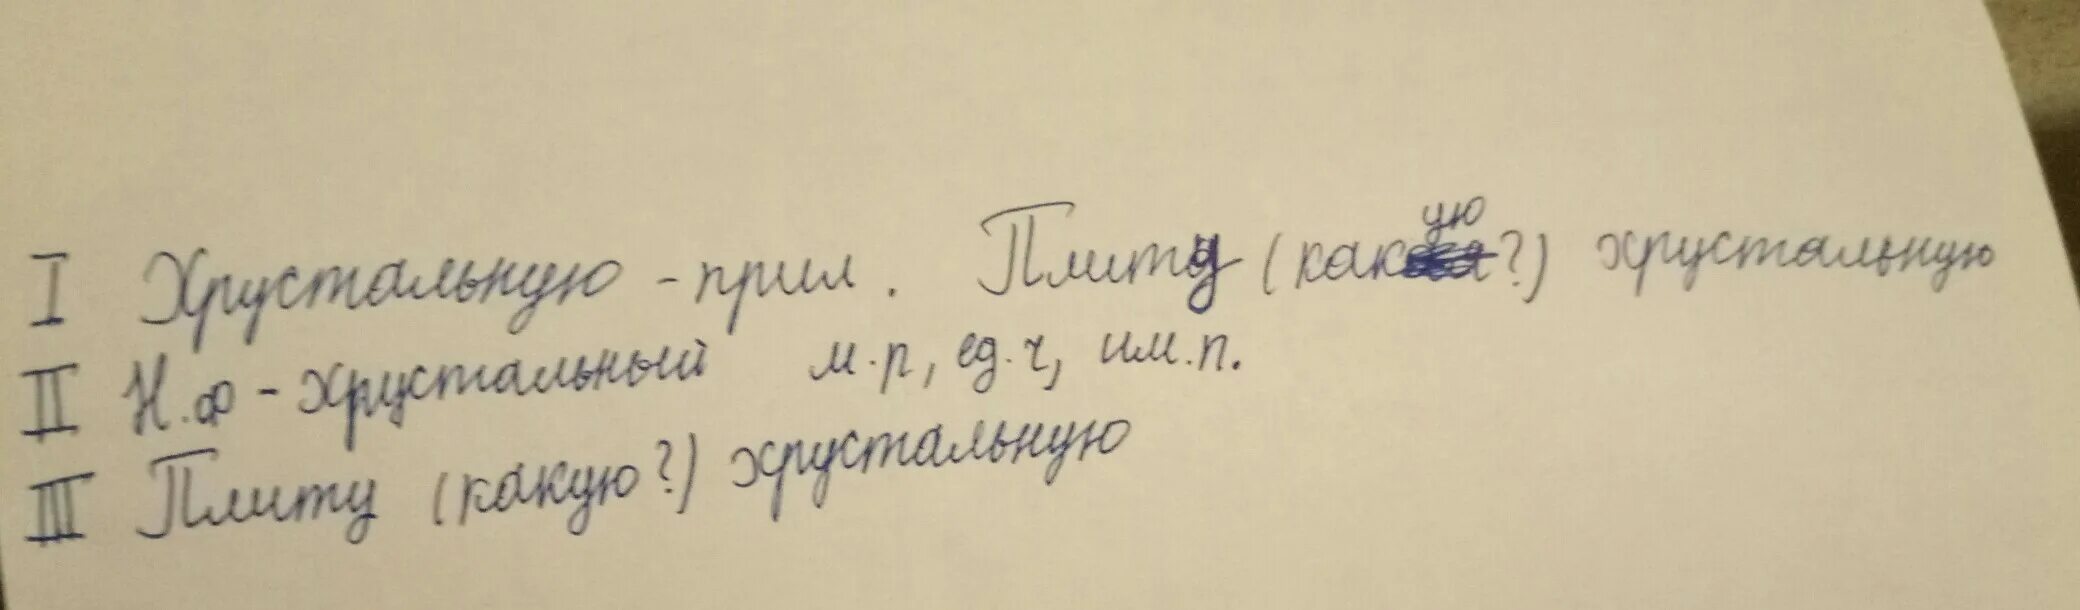 I Хрустальную - прил. Плиту (какую?) хрустальную
II Н.ф - хрустальный м.р, ед.ч, им.п.
III Плиту (какую?) хрустальную